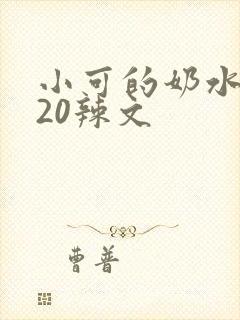 小可的奶水
20辣文
曹普